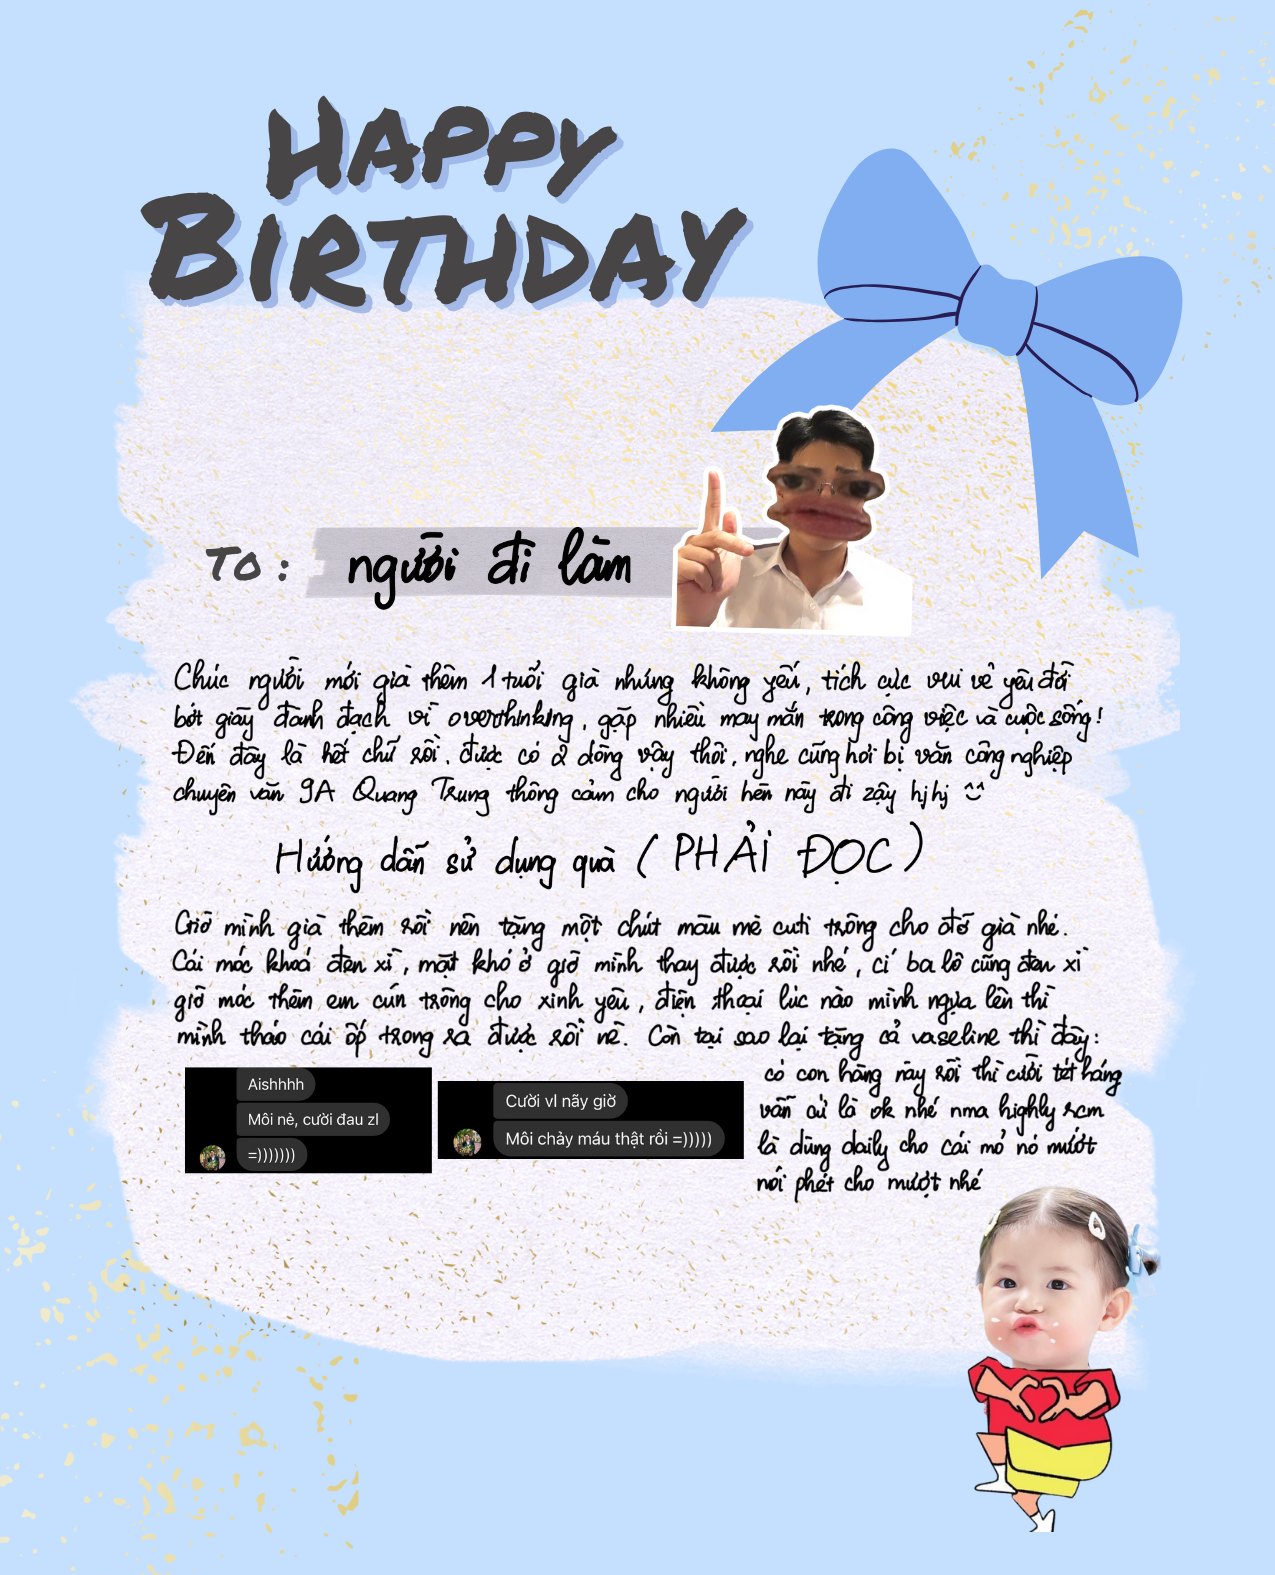 HAPPY
BIRTHDAY
TO :
người đi làm
Chúc người mới già thêm 1 tuổi già nhưng không yếu, tích cực vui vẻ yêu đời
bớt giãy đành đạch vì overthinking, gặp nhiều may mắn trong công việc và cuộc sống!
Đến đây là hết chữ rồi, được có 2 dòng vậy thôi, nghe cũng hơi bị văn công nghiệp
chuyên văn 9A Quang Trung thông cảm cho người hèn này đi zậy hjhj
Hướng dẫn sử dụng quà ( PHẢI ĐỌC )
Giờ mình già thêm rồi nên tặng một chút màu mè cuti trông cho đỡ già nhé.
Cái móc khoá đen xì, mặt khó ở giờ mình thay được rồi nhé, cí ba lô cũng đen xì
giờ móc thêm em cún trông cho xinh yêu, điện thoại lúc nào mình ngựa lên thì
mình tháo cái ốp trong ra được rồi nè. Còn tại sao lại tặng cả vaseline thì đây:
Aishhhh
Môi nẻ, cười đau zl
=)))))))
Cười vl nãy giờ
Môi chảy máu thật rồi =)))))
có con hàng này rồi thì cười tét háng
vẫn cứ là ok nhé nma highly rcm
là dùng daily cho cái mỏ nó mướt
nói phét cho mượt nhé